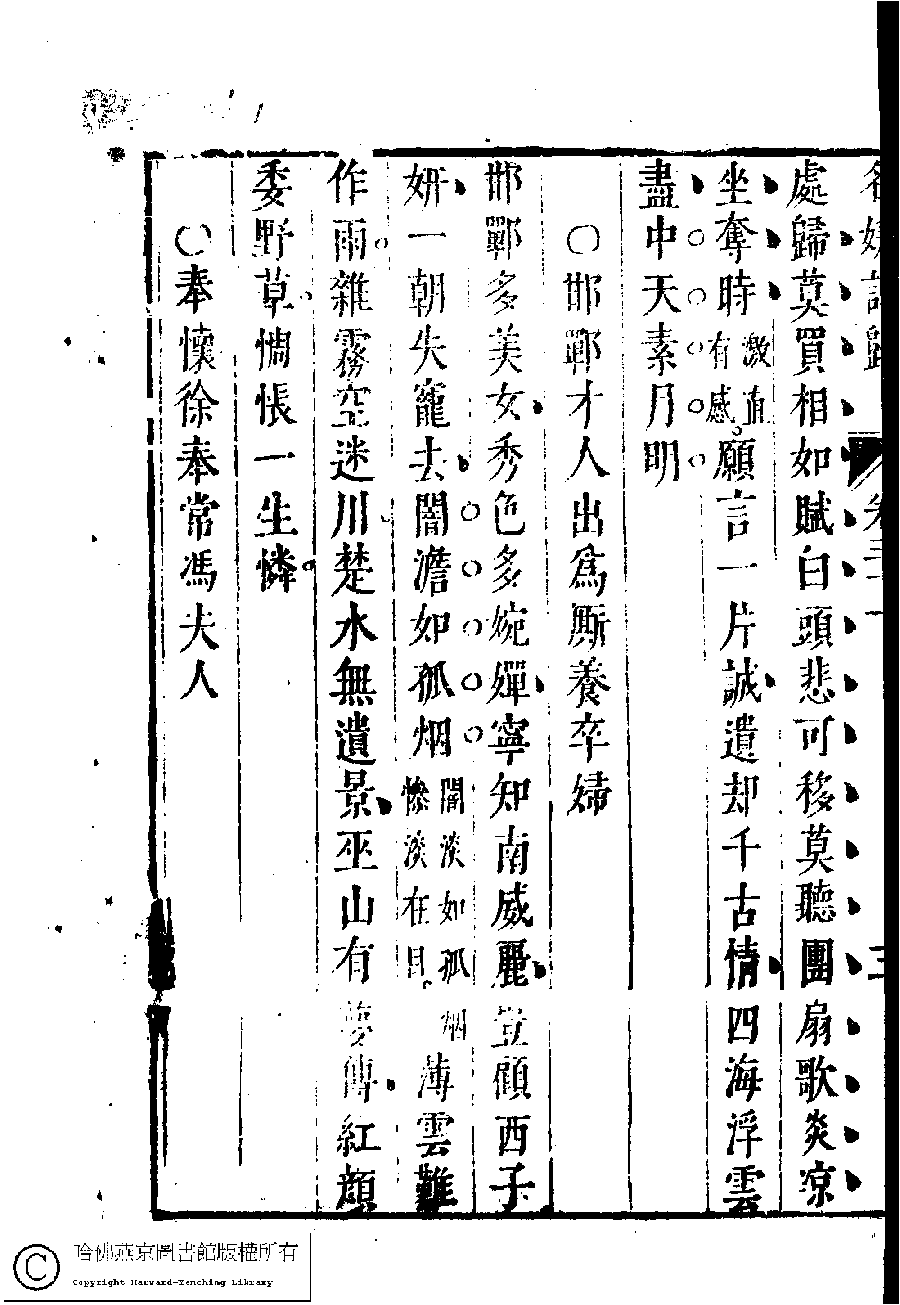 名媛詩歸
處歸莫買相如賦白頭悲可移莫聽團扇歌炎凉
坐奪時激直有感願言一片誠遺却千古情四海浮雲
盡中天素月明
〇邯鄲才人出爲厮養卒婦
邯鄲多美女秀色多婉嬋寧知南威麗豈顧西子
妍一朝失寵去闇澹如孤烟闇淡如孤烟慘淡在目薄雲難
作雨雜霧空迷川楚水無遺景巫山有夢傳紅顔
委野草惆悵一生憐
〇奉懷徐奉常馮夫人
哈佛燕京圖書館版權所有
Copyright Harvard-Yenching Library